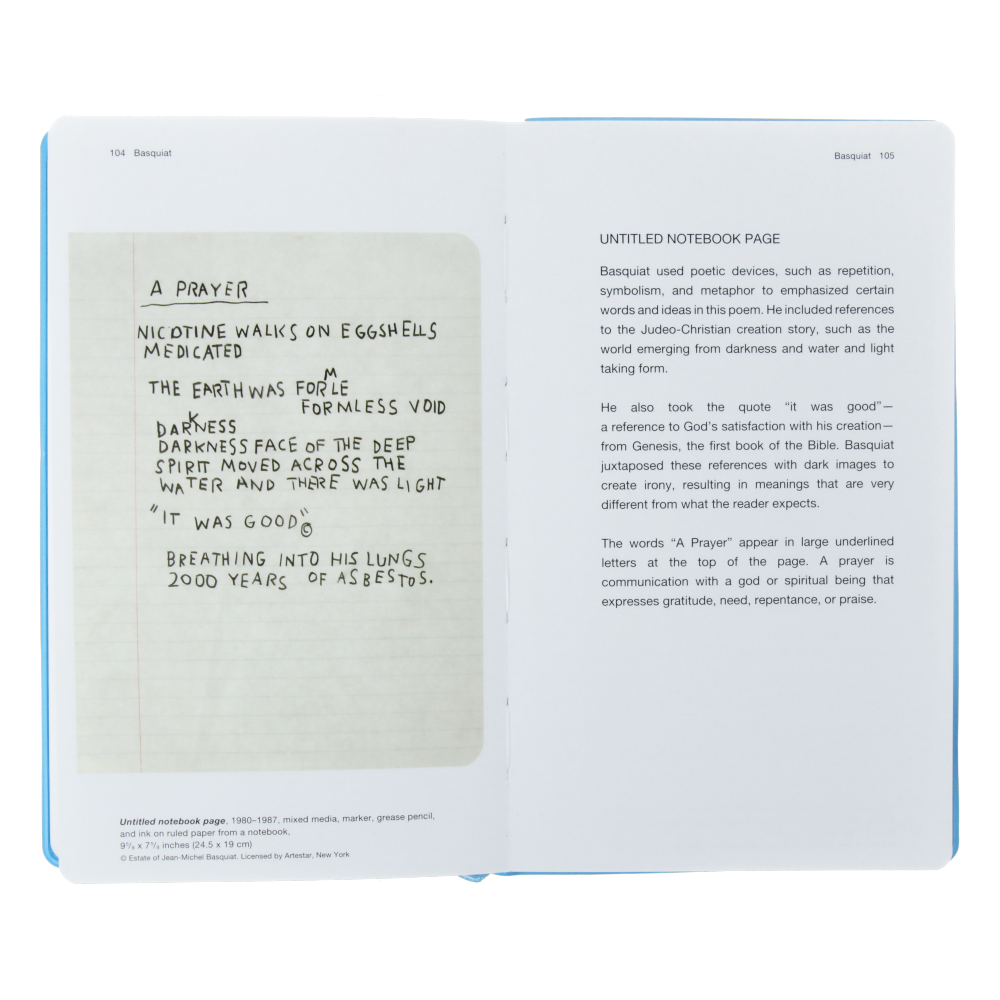 104 Basquiat
A PRAYER
NICOTINE WALKS ON EGGSHELLS
MEDICATED
M
THE EARTH WAS FORLE
FORMLESS VOID
K
DARNESS
DARKNESS FACE OF THE DEEP
SPIRIT MOVED ACROSS THE
WATER AND THERE WAS LIGHT
"IT WAS GOOD"©
BREATHING INTO HIS LUNGS
2000 YEARS OF ASBESTOS.
Untitled notebook page, 1980–1987, mixed media, marker, grease pencil,
and ink on ruled paper from a notebook,
9⁵/₈ x 7⁵/₈ inches (24.5 x 19 cm)
© Estate of Jean-Michel Basquiat. Licensed by Artestar, New York
Basquiat 105
UNTITLED NOTEBOOK PAGE
Basquiat used poetic devices, such as repetition,
symbolism, and metaphor to emphasized certain
words and ideas in this poem. He included references
to the Judeo-Christian creation story, such as the
world emerging from darkness and water and light
taking form.
He also took the quote “it was good”—
a reference to God’s satisfaction with his creation—
from Genesis, the first book of the Bible. Basquiat
juxtaposed these references with dark images to
create irony, resulting in meanings that are very
different from what the reader expects.
The words “A Prayer” appear in large underlined
letters at the top of the page. A prayer is
communication with a god or spiritual being that
expresses gratitude, need, repentance, or praise.